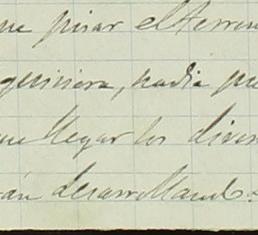 ue pisar el terren
quiniera, nadie pue
ue llegar los diver
án desarrollando